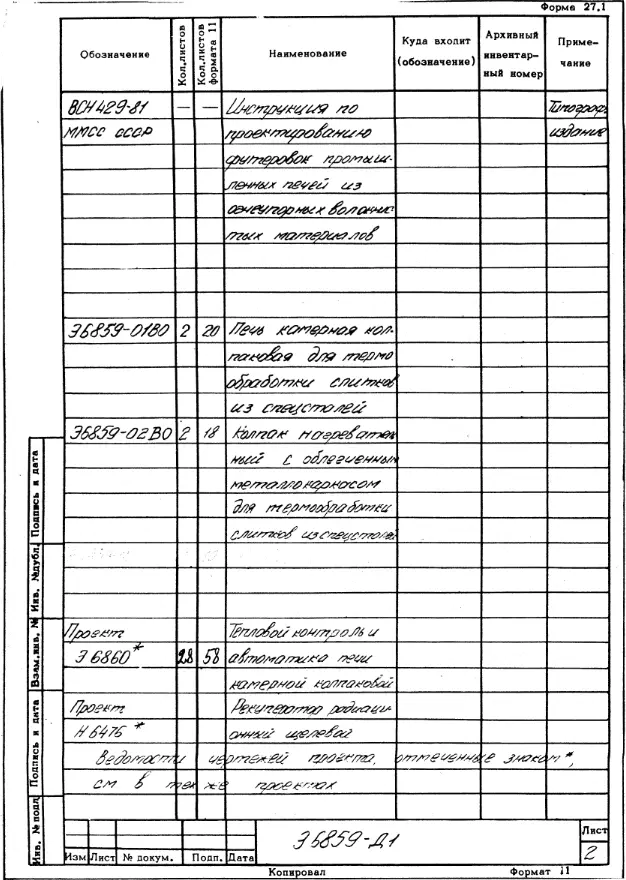 Форма 27.1
Обозначение Кол.листов Кол.листов формата 11 Наименование Куда входит (обозначение) Архивный инвентар- ный номер Приме- чание
ВСН 429-81 — — Инструкция по Типограф.
ММСС СССР проектированию издание
футеровок промыш-
ленных печей из
огнеупорных волокнис-
тых материалов
Э6859-01ВО 2 20 Печь камерная кол-
паковая для термо
обработки слитков
из спецсталей
Э6859-02ВО 2 18 Колпак нагреватель
ный с облегченным
металлокаркасом
для термообработки
слитков из спецсталей
Проект Тепловой контроль и
Э 6860* 28 58 автоматика печи
камерной колпаковой
Проект Рекуператор радиаци-
Н 6476 * онный щелевой
Ведомости чертежей проекта, отмеченные знаком *,
см в тех же проектах
Э6859-Д1
Лист
2
Изм Лист № докум. Подп. Дата
Копировал Формат 11
Подпись и дата
Инв. № дубл.
Взам.инв. №
Подпись и дата
Инв. № подл